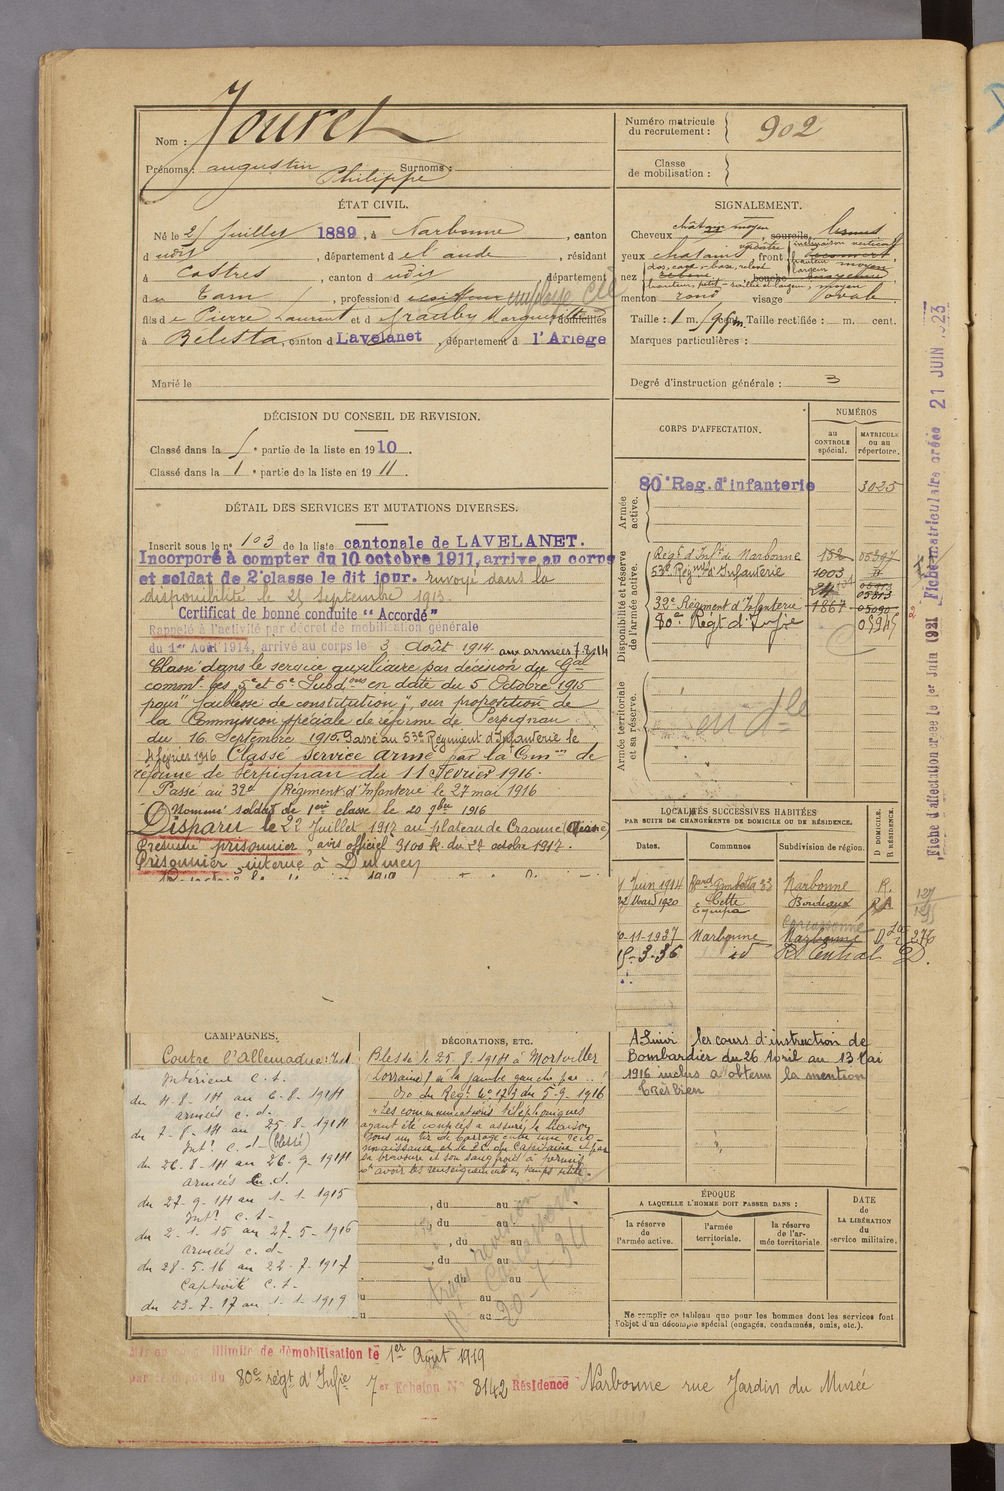 Nom : Jouret
Prénoms : augustin Philippe Surnoms :
ÉTAT CIVIL.
Né le 25 juillet 1889, à Narbonne, canton
d udit, département d el aude, résidant
à Castres, canton d udit, département
du Tarn, profession d employé
fils de Pierre Laurent et d Marguerite, domiciliés
à Bélesta, canton d Lavelanet, département d l'Ariege
Marié le
DÉCISION DU CONSEIL DE REVISION.
Classé dans la partie de la liste en 1910.
Classé dans la 1e partie de la liste en 1911.
DÉTAIL DES SERVICES ET MUTATIONS DIVERSES.
Inscrit sous le n° 103 de la liste cantonale de LAVELANET.
Incorporé à compter du 10 octobre 1911, arrive au corps
et soldat de 2e classe le dit jour. renvoyé dans la
disponibilité le 25 Septembre 1913.
Certificat de bonne conduite "Accordé"
Rappelé à l'activité par décret de mobilisation générale
du 1er Août 1914, arrivé au corps le 3 Août 1914 aux armées 7.8.14
Classé dans le service auxiliaire par décision du Gal
comont les 5e et 6e Subdons en date du 5 Octobre 1915
pour "faiblesse de constitution", sur proposition de
la Commission spéciale de réforme de Perpignan
du 16 Septembre 1915. Passé au 53e Régiment d'Infanterie le
4 février 1916 Classé service armé par la Comon de
réforme de Perpignan du 11 Février 1916.
Passé au 32e Régiment d'Infanterie le 27 mai 1916
Nommé soldat de 1ère classe le 20 9bre 1916
Disparu le 22 Juillet 1917 au plateau de Craonne (Aisne)
Présumé prisonnier, avis officiel 3100 K. du 22 octobre 1917.
Prisonnier interné à Dülmen
CAMPAGNES.
Contre l'Allemagne :
Intérieur C. S.
du 4-8-14 au 6-8-1914
armées c. d.
du 7-8-14 au 25-8-1914
Intr c. d. (blessé)
du 26-8-14 au 26-9-1914
armées c. d.
du 27-9-14 au 1-1-1915
Intr c. s.
du 2-1-15 au 27-5-1916
armées c. d.
du 28-5-16 au 22-7-1917
Captivité c. s.
du 23-7-17 au 1-1-1919
DÉCORATIONS, ETC.
Blessé le 25-8-1914 à Mortviller
Lorraine) à la jambe gauche par
Oro du Régt No 179 du 5-9-1916
"les communications téléphoniques
ayant été coupées a assuré la liaison
sous un tir de barrage entre une reco-
nnaissance et le P.C. du Capitaine et par
sa bravoure et son sang froid a permis
d'avoir les renseignements en temps utile.
, du au
, du au
, du au
, du au
, du au
u au
u au
trans revision
R. Carcassonne
20-7-34
Numéro matricule
du recrutement : 902
Classe
de mobilisation :
SIGNALEMENT.
Cheveux châtain moyen, sourcils
yeux chatains verdâtre front inclinaison vertical
hauteur moyen
largeur
nez dos, cave, base, relevé bouche moyenne
hauteur, petit saillie et largeur, moyen
menton rond visage ovale
Taille : 1 m. cent. Taille rectifiée : m. cent.
Marques particulières :
Degré d'instruction générale : 3
CORPS D'AFFECTATION.
NUMÉROS
au CONTROLE spécial.
MATRICULE ou au répertoire.
Armée active.
80e Reg. d'infanterie 3025
Disponibilité et réserve de l'armée active.
Regt d'Infie de Narbonne 152 05397
53e Régint d'Infanterie 1003
32e Régiment d'Infanterie 1867 05090
80e Régt d'Infie 05945
Armée territoriale et sa réserve.
en dle
LOCALITÉS SUCCESSIVES HABITÉES
PAR SUITE DE CHANGEMENTS DE DOMICILE OU DE RÉSIDENCE.
Dates. Communes Subdivision de région. D DOMICILE. R RÉSIDENCE.
Juin 1914 Bard Gambetta 33 Narbonne R.
22 Mars 1920 Cette Bordeaux
Carcassonne
0-11-1927 Narbonne Narbonne D 276
15-3-36 id Rt Central D.
A Suivi les cours d'instruction de
Bombardier du 26 Avril au 13 Mai
1916 inclus a obtenu la mention
très bien
ÉPOQUE
A LAQUELLE L'HOMME DOIT PASSER DANS :
la réserve de l'armée active.
l'armée territoriale.
la réserve de l'armée territoriale.
DATE de LA LIBÉRATION du service militaire.
Ne remplir ce tableau que pour les hommes dont les services font
l'objet d'un décompte spécial (engagés, condamnés, omis, etc.).
illimité de démobilisation le 1er Août 1919
dépôt du 80e régt d'Infie 7er Echelon No 8142 Résidence Narbonne rue Jardin du Musée
Fiche d'affectation créée le 1er Juin 1921 Fiche matriculaire créée 21 JUIN 1923